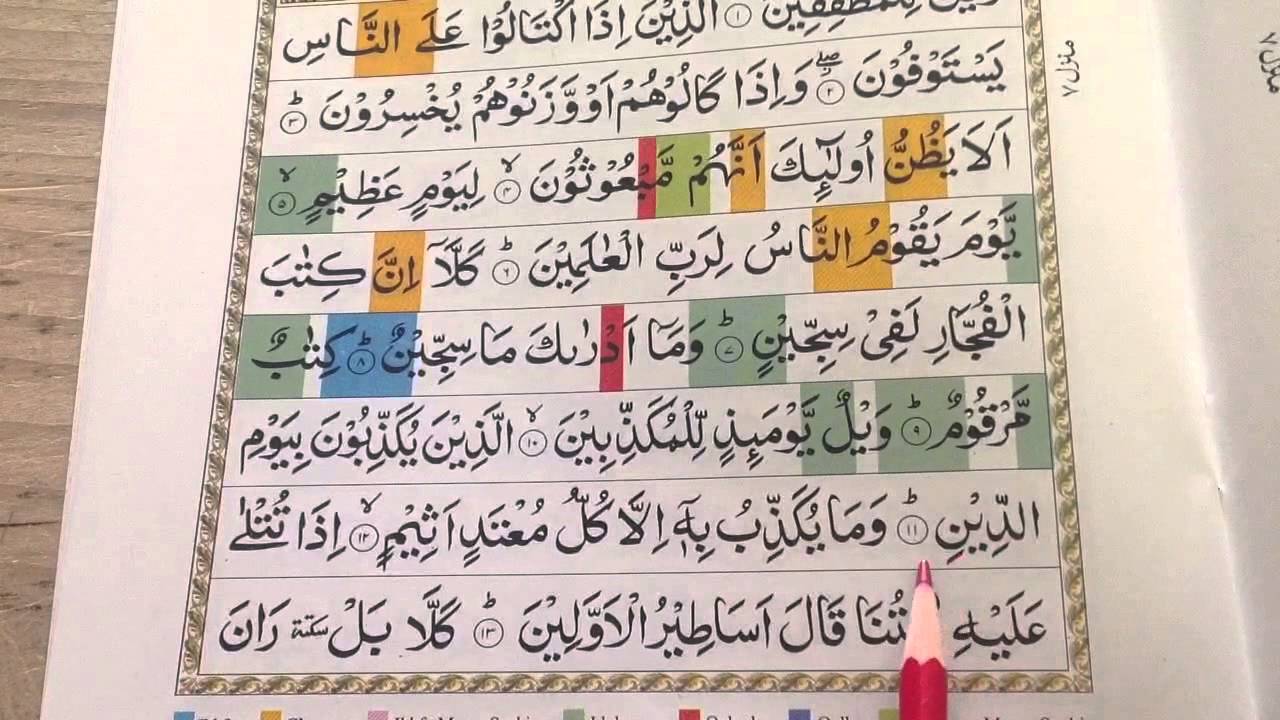 وَيْلٌ لِّلْمُطَفِّفِيْنَ ۙ۝۱ الَّذِيْنَ اِذَا اكْتَالُوْا عَلَى النَّاسِ
يَسْتَوْفُوْنَ ۖ۝۲ وَاِذَا كَالُوْهُمْ اَوْ وَّزَنُوْهُمْ يُخْسِرُوْنَ ؕ۝۳
اَلَا يَظُنُّ اُولٰٓئِكَ اَنَّهُمْ مَّبْعُوْثُوْنَ ۙ۝۴ لِيَوْمٍ عَظِيْمٍ ۙ۝۵
يَّوْمَ يَقُوْمُ النَّاسُ لِرَبِّ الْعٰلَمِيْنَ ؕ۝۶ كَلَّاۤ اِنَّ كِتٰبَ
الْفُجَّارِ لَفِيْ سِجِّيْنٍ ؕ۝۷ وَمَاۤ اَدْرٰىكَ مَا سِجِّيْنٌ ؕ۝۸ كِتٰبٌ
مَّرْقُوْمٌ ؕ۝۹ وَيْلٌ يَّوْمَئِذٍ لِّلْمُكَذِّبِيْنَ ۙ۝۱۰ الَّذِيْنَ يُكَذِّبُوْنَ بِيَوْمِ
الدِّيْنِ ؕ۝۱۱ وَمَا يُكَذِّبُ بِهٖۤ اِلَّا كُلُّ مُعْتَدٍ اَثِيْمٍ ۙ۝۱۲ اِذَا تُتْلٰى
عَلَيْهِ اٰيٰتُنَا قَالَ اَسَاطِيْرُ الْاَوَّلِيْنَ ؕ۝۱۳ كَلَّا بَلْ سكتة رَانَ
منزل ۷
منزل ۷